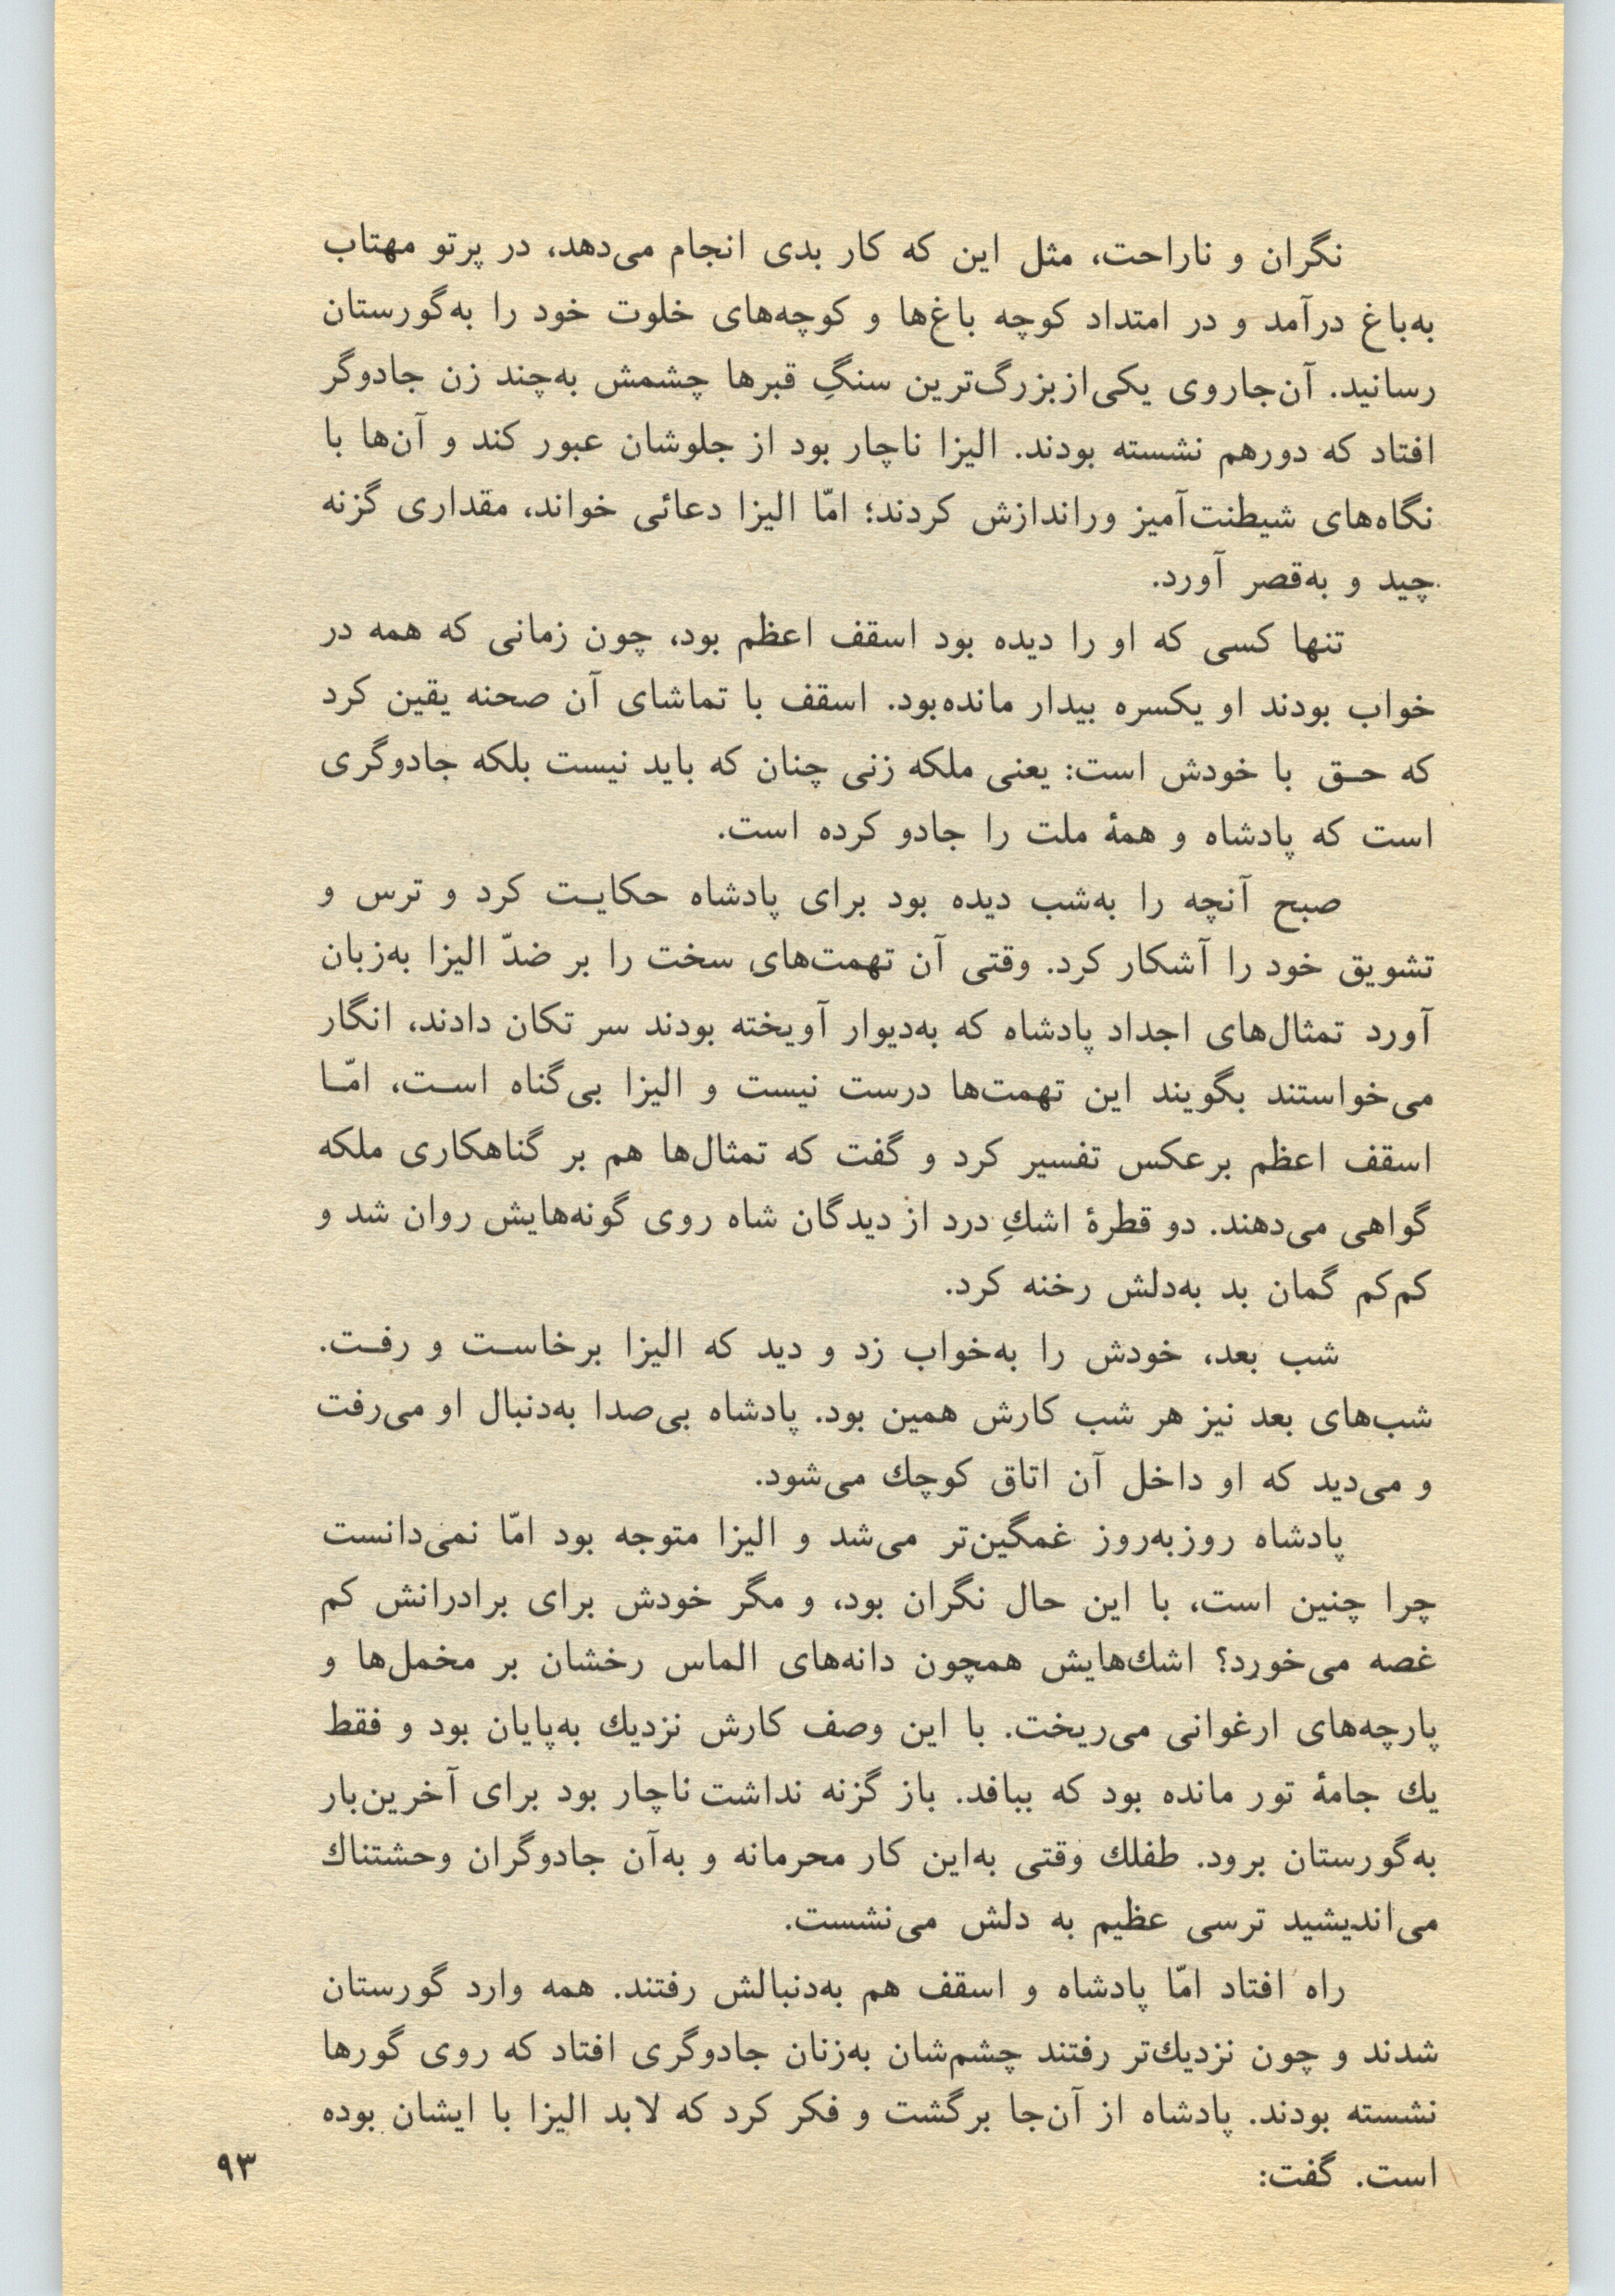 نگران و ناراحت، مثل این که کار بدی انجام می‌دهد، در پرتو مهتاب
به‌باغ درآمد و در امتداد کوچه باغ‌ها و کوچه‌های خلوت خود را به‌گورستان
رسانید. آن‌جاروی یکی‌ازبزرگ‌ترین سنگِ قبرها چشمش به‌چند زن جادوگر
افتاد که دورهم نشسته بودند. الیزا ناچار بود از جلوشان عبور کند و آن‌ها با
نگاه‌های شیطنت‌آمیز وراندازش کردند؛ امّا الیزا دعائی خواند، مقداری گزنه
چید و به‌قصر آورد.
تنها کسی که او را دیده بود اسقف اعظم بود، چون زمانی که همه در
خواب بودند او یکسره بیدار مانده‌بود. اسقف با تماشای آن صحنه یقین کرد
که حـق با خودش است: یعنی ملکه زنی چنان که باید نیست بلکه جادوگری
است که پادشاه و همهٔ ملت را جادو کرده است.
صبح آنچه را به‌شب دیده بود برای پادشاه حکایـت کرد و ترس و
تشویق خود را آشکار کرد. وقتی آن تهمت‌های سخت را بر ضدّ الیزا به‌زبان
آورد تمثال‌های اجداد پادشاه که به‌دیوار آویخته بودند سر تکان دادند، انگار
می‌خواستند بگویند این تهمت‌ها درست نیست و الیزا بی‌گناه اسـت، امّـا
اسقف اعظم برعکس تفسیر کرد و گفت که تمثال‌ها هم بر گناهکاری ملکه
گواهی می‌دهند. دو قطرهٔ اشكِ درد از دیدگان شاه روی گونه‌هایش روان شد و
کم‌کم گمان بد به‌دلش رخنه کرد.
شب بعد، خودش را به‌خواب زد و دید که الیزا برخاسـت و رفـت.
شب‌های بعد نیز هر شب کارش همین بود. پادشاه بی‌صدا به‌دنبال او می‌رفت
و می‌دید که او داخل آن اتاق کوچك می‌شود.
پادشاه روزبه‌روز غمگین‌تر می‌شد و الیزا متوجه بود امّا نمی‌دانست
چرا چنین است، با این حال نگران بود، و مگر خودش برای برادرانش کم
غصه می‌خورد؟ اشك‌هایش همچون دانه‌های الماس رخشان بر مخمل‌ها و
پارچه‌های ارغوانی می‌ریخت. با این وصف کارش نزدیك به‌پایان بود و فقط
یك جامهٔ تور مانده بود که ببافد. باز گزنه نداشت ناچار بود برای آخرین‌بار
به‌گورستان برود. طفلك وقتی به‌این کار محرمانه و به‌آن جادوگران وحشتناك
می‌اندیشید ترسی عظیم به دلش می‌نشست.
راه افتاد امّا پادشاه و اسقف هم به‌دنبالش رفتند. همه وارد گورستان
شدند و چون نزدیك‌تر رفتند چشم‌شان به‌زنان جادوگری افتاد که روی گورها
نشسته بودند. پادشاه از آن‌جا برگشت و فکر کرد که لابد الیزا با ایشان بوده
است. گفت:
۹۳